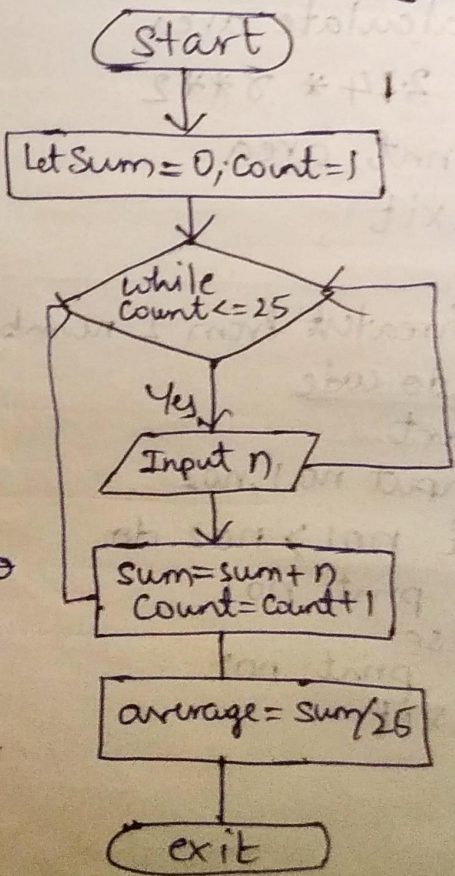 Start
Let Sum = 0, Count = 1
while
Count <= 25
Yes
Input n
Sum = Sum + n
Count = Count + 1
average = Sum/25
exit